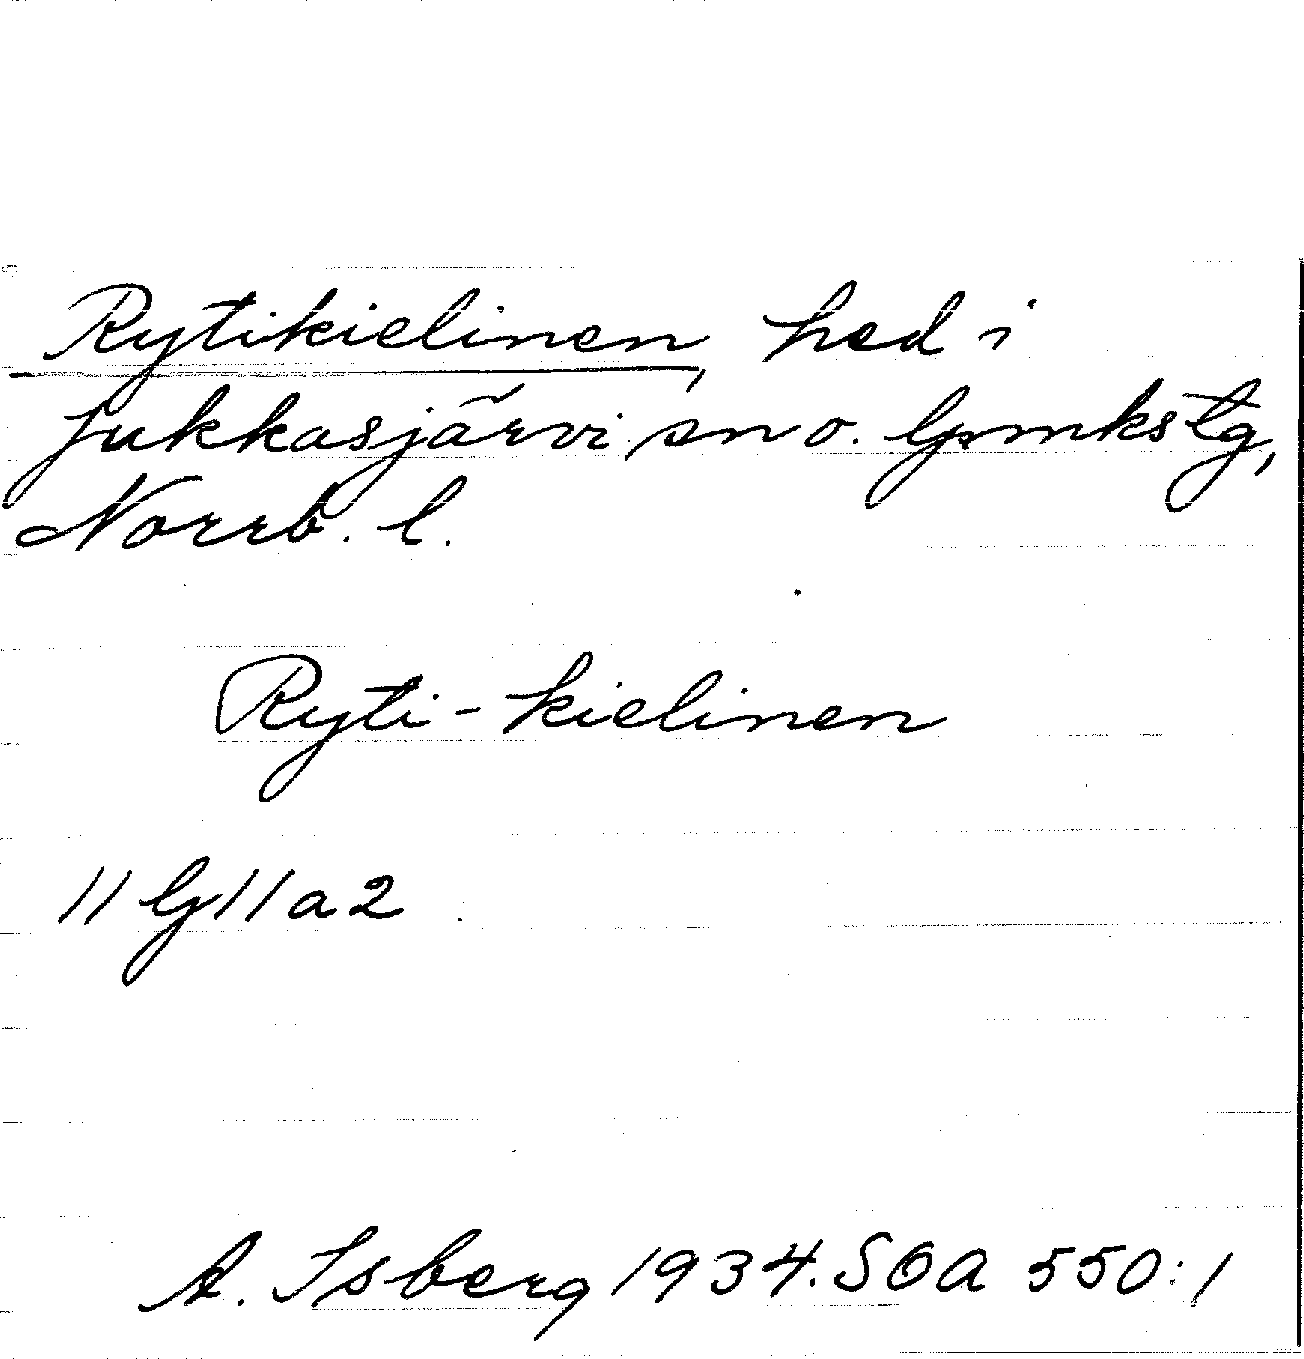 Rytikielinen, hed i
Jukkasjärvi sn o. Gmkstg,
Norrb. l.
Ryti-kielinen
11 G 11 a 2
A. Isberg 1934. SOA 550:1